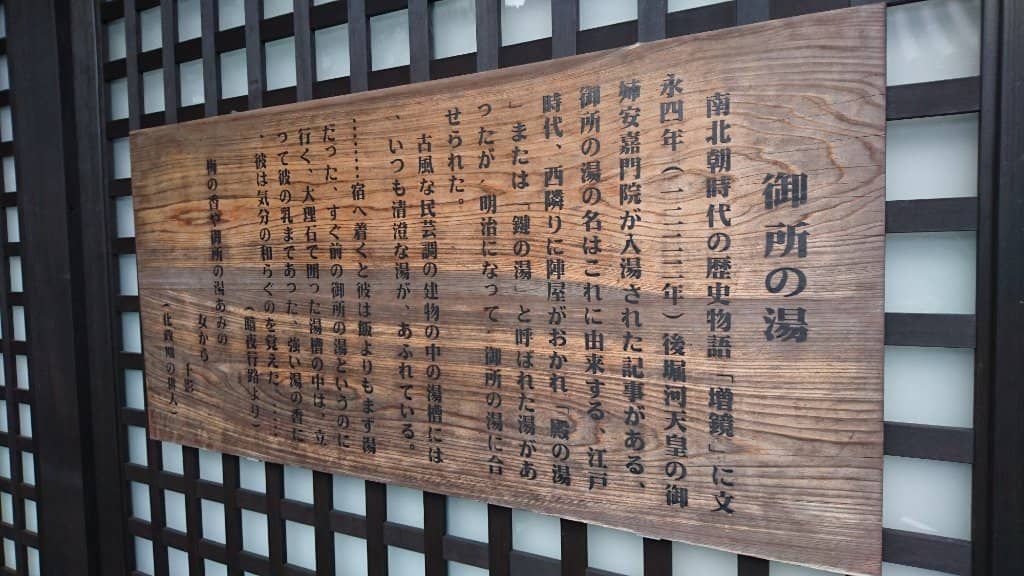 御所の湯
南北朝時代の歴史物語「増鏡」に文
永四年（一二三三年）後堀河天皇の御
姉安嘉門院が入湯された記事がある、
御所の湯の名はこれに由来する、江戸
時代、西隣りに陣屋がおかれ「殿の湯
」または「鍵の湯」と呼ばれた湯があ
ったが 明治になって 御所の湯に合
せられた。
古風な民芸調の建物の中の湯槽には
、いつも清澄な湯が、あふれている。
……宿へ着くと彼は飯よりもまず湯
だった、すぐ前の御所の湯というのに
行く、大理石で囲った湯槽の中は、立
って彼の乳まであった、強い湯の香に
、彼は気分の和らぐのを覚えた……
（暗夜行路より）
梅の香や御所の湯あみの
女から
（化政期の俳人）